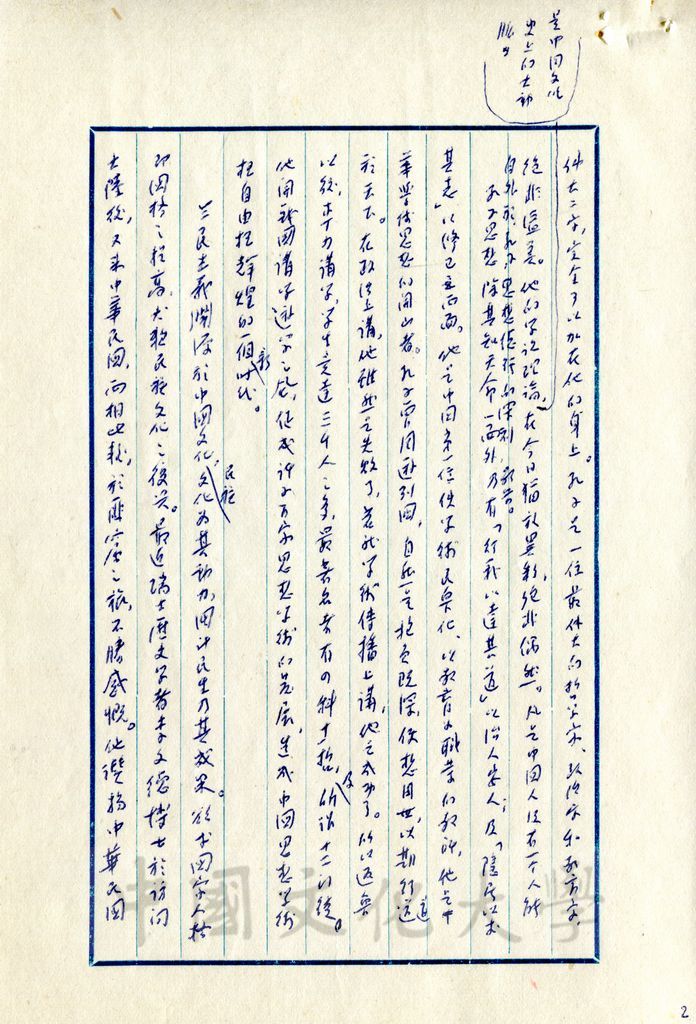 是中國文化
史上的大動
脈。
偉大二字,完全可以加在他的身上。孔子是一位最偉大的哲學家、政治家和教育家,
絕非溢美。他的學說理論,在今日猶放異彩,絕非偶然。凡是中國人沒有一個人能
自外於孔子思想德行的深刻影響。
孔子思想,除其知天命一面外,乃有「行義以達其道」以治人安人;及「隱居以求
其志」以修己立己兩面。他是中國第一位使學術民眾化、以教育為職業的教師,他是中
華學術思想的開山者。孔子曾周遊列國,自然是抱負既深,使想用世,以期行道
於天下。在政治上講,他雖然是失敗了,若就學術傳播上講,他是成功了。所以返魯
以後,專力講學,學生竟達三千人之多,最著名者有四科十哲,及所謂七十二人後。
他開我國講學遊學之風,促成許多百家思想學術的發展,造成中國思想學術
極自由極輝煌的一個新時代。
三民主義淵源於中國文化,民族文化為其動力,國計民生乃其成果。欲求國家人格
即國格之提高,尤賴民族文化之復興。最近瑞士歷史學者李文德博士於訪問
大陸後,又來中華民國,兩相比較,於匪窟之旅,不勝感慨。他讚揚中華民國
中國文化大學
2